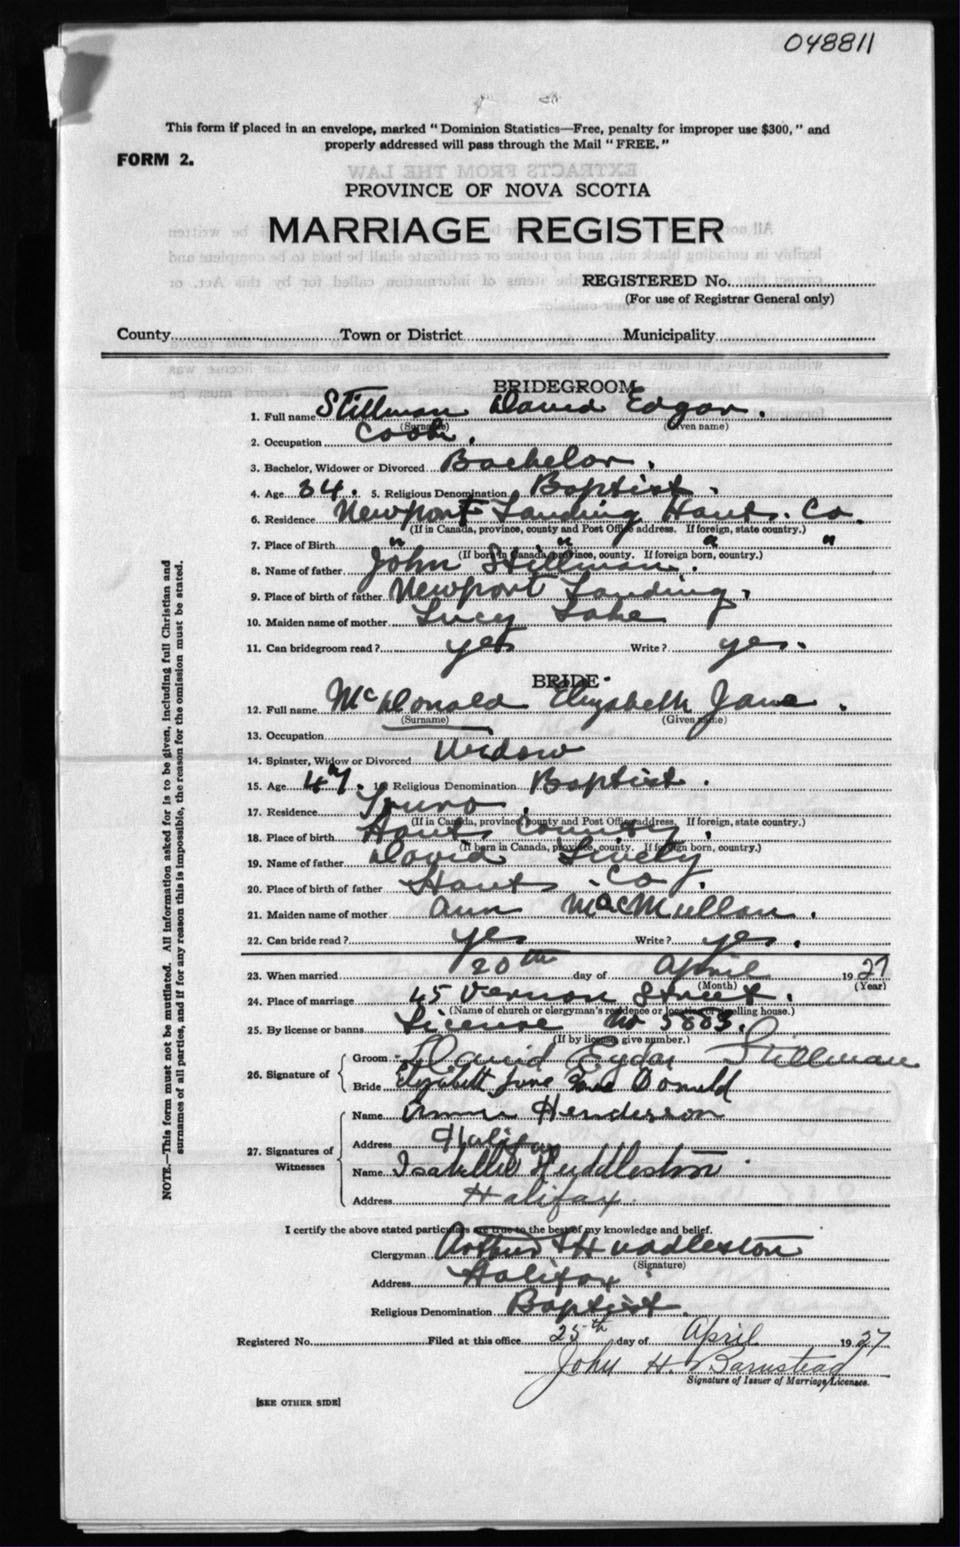 048811
This form if placed in an envelope, marked "Dominion Statistics—Free, penalty for improper use $300," and
properly addressed will pass through the Mail "FREE."
FORM 2.
PROVINCE OF NOVA SCOTIA
MARRIAGE REGISTER
REGISTERED No.
(For use of Registrar General only)
County Town or District Municipality
BRIDEGROOM
1. Full name Stillman David Edgar.
(Surname) (Given name)
2. Occupation Cook.
3. Bachelor, Widower or Divorced Bachelor.
4. Age 34. 5. Religious Denomination Baptist.
6. Residence Newport Landing Hants. Co.
(If in Canada, province, county and Post Office address. If foreign, state country.)
7. Place of Birth " " " "
(If born in Canada, province, county. If foreign born, country.)
8. Name of father John Stillman.
9. Place of birth of father Newport Landing,
10. Maiden name of mother Lucy Lake
11. Can bridegroom read? yes Write? yes.
BRIDE
12. Full name McDonald Elizabeth Jane.
(Surname) (Given name)
13. Occupation
14. Spinster, Widow or Divorced Widow
15. Age 47. 16. Religious Denomination Baptist.
17. Residence Truro.
(If in Canada, province, county and Post Office address. If foreign, state country.)
18. Place of birth Hants County.
(If born in Canada, province, county. If foreign born, country.)
19. Name of father David Lively
20. Place of birth of father Hants. Co.
21. Maiden name of mother Ann MacMullan.
22. Can bride read? yes Write? yes.
23. When married 20th day of April 1927
(Month) (Year)
24. Place of marriage 45 Vernon Street.
(Name of church or clergyman's residence or location of dwelling house.)
25. By license or banns License No 5883.
(If by license, give number.)
26. Signature of Groom David Edgar Stillman
Bride Elizabeth Jane Mac Donald
27. Signatures of Witnesses Name Anna Henderson
Address Halifax
Name Isabelle Huddleston
Address Halifax.
I certify the above stated particulars are true to the best of my knowledge and belief.
Clergyman Arthur Huddleston
(Signature)
Address Halifax.
Religious Denomination Baptist.
Registered No. Filed at this office 25th day of April 1927
John H. Barnstead
Signature of Issuer of Marriage Licenses.
[SEE OTHER SIDE]
NOTE.—This form must not be mutilated. All information asked for is to be given, including full Christian and
surnames of all parties, and if for any reason this is impossible, the reason for the omission must be stated.